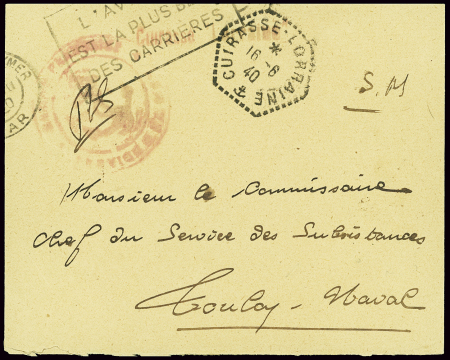 L'AV
EST LA PLUS BE
DES CARRIÈRES
CUIRASSE-LORRAINE
16-6
40
MER
AR
S.M
Monsieur le Commissaire
Chef du Service des Subsistances
Toulon-Naval